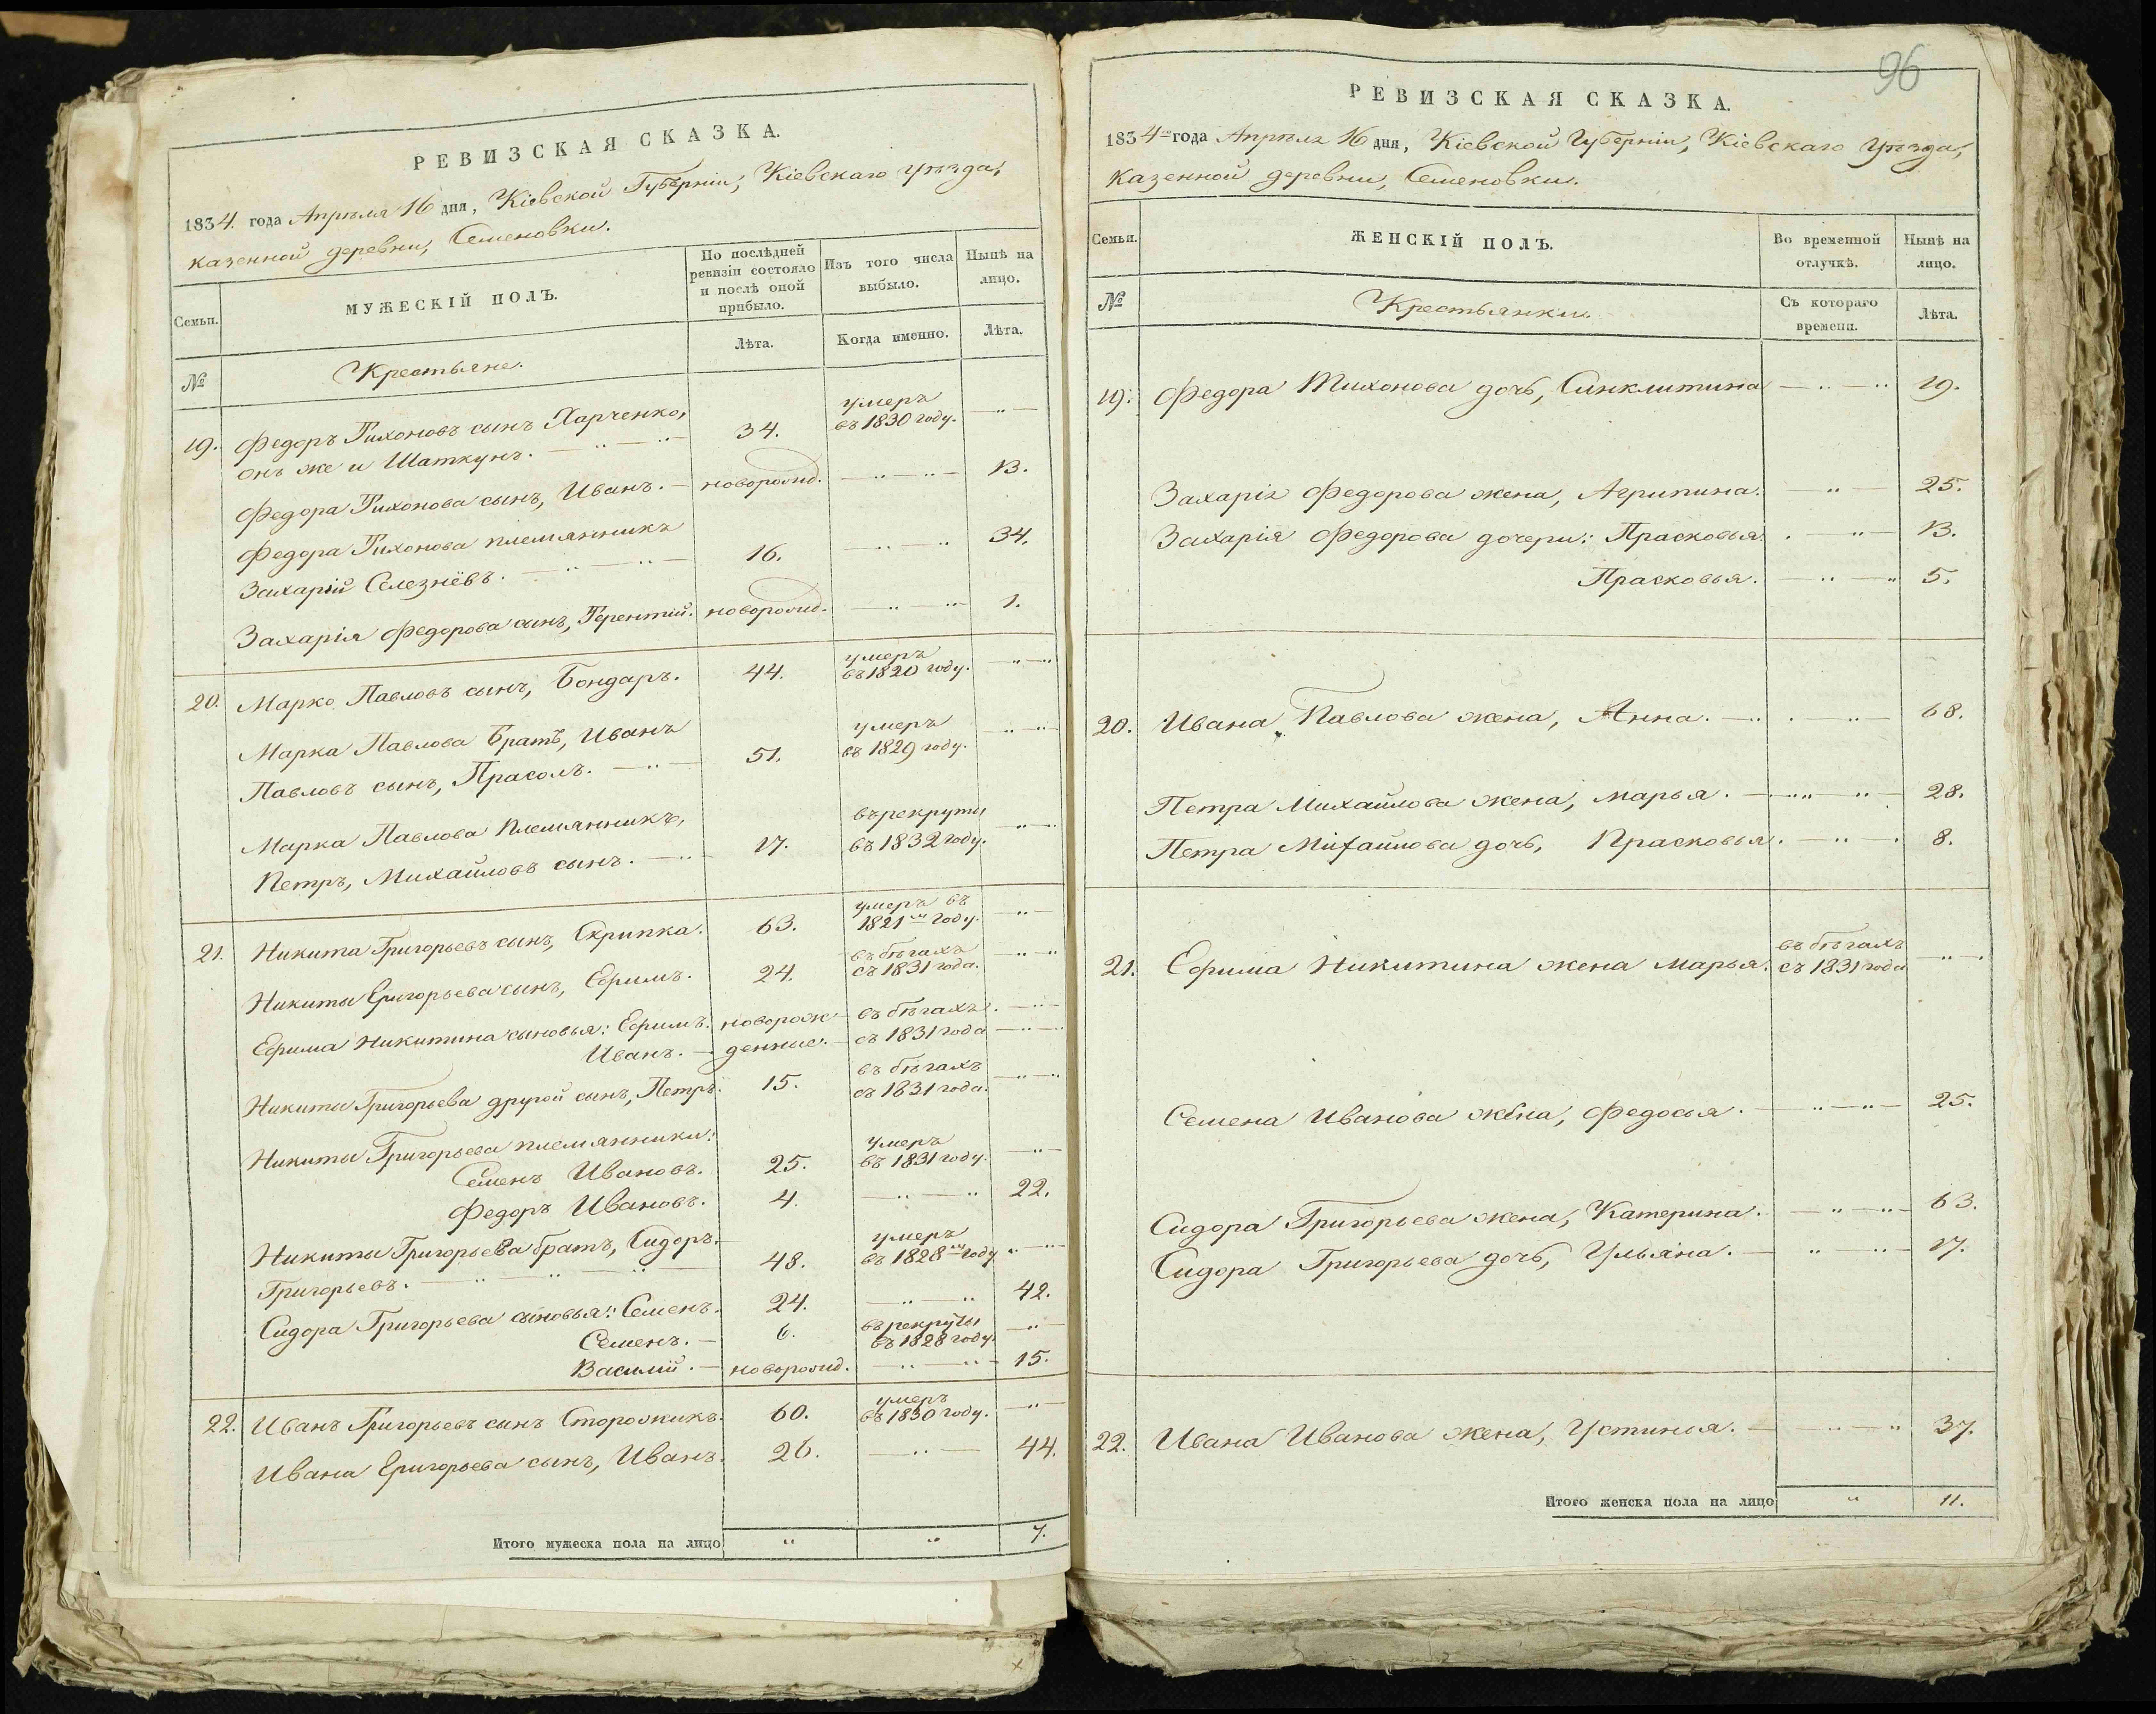 РЕВИЗСКАЯ СКАЗКА.
1834. года Апрѣля 16 дня, Кіевской Губерніи, Кіевскаго уѣзда,
казенной деревни, Семеновки.
Семьи.
МУЖЕСКІЙ ПОЛЪ.
По послѣдней
ревизіи состояло
и послѣ оной
прибыло.
Изъ того числа
выбыло.
Нынѣ на
лицо.
Лѣта.
Когда именно.
Лѣта.
№
Крестьяне.
19. Федоръ Тихоновъ сынъ Харченко,
онъ же и Шаткунъ. 34. умеръ въ 1830 году.
Федора Тихонова сынъ, Иванъ. новорожд. 13.
Федора Тихонова племянникъ
Захарій Селезнёвъ. 16. 34.
Захарія Федорова сынъ, Терентій. новорожд. 1.
20. Марко Павловъ сынъ, Бондаръ. 44. умеръ въ 1820 году.
Марка Павлова Братъ, Иванъ
Павловъ сынъ, Прасолъ. 51. умеръ въ 1829 году.
Марка Павлова Племянникъ,
Петръ, Михайловъ сынъ. 17. въ рекруты въ 1832 году.
21. Никита Григорьевъ сынъ, Скрипка. 63. умеръ въ 1821мъ году.
Никиты Григорьева сынъ, Ефимъ. 24. въ бѣгахъ съ 1831 года.
Ефима Никитина сыновья: Ефимъ. новорож- въ бѣгахъ
Иванъ. денные. съ 1831 года
Никиты Григорьева другой сынъ, Петръ. 15. въ бѣгахъ съ 1831 года.
Никиты Григорьева племянники:
Семенъ Ивановъ. 25. умеръ въ 1831 году.
Федоръ Ивановъ. 4. 22.
Никиты Григорьева братъ, Сидоръ
Григорьевъ. 48. умеръ въ 1828мъ году
Сидора Григорьева сыновья: Семенъ. 24. 42.
Семенъ. 6. въ рекруты въ 1828 году.
Василій. новорожд. 15.
22. Иванъ Григорьевъ сынъ Сторожикъ. 60. умеръ въ 1830 году.
Ивана Григорьева сынъ, Иванъ. 26. 44.
Итого мужеска пола на лицо " " 7.
96
РЕВИЗСКАЯ СКАЗКА.
1834го года Апрѣля 16 дня, Кіевской Губерніи, Кіевскаго уѣзда,
казенной деревни, Семеновки.
Семьи.
ЖЕНСКІЙ ПОЛЪ.
Во временной
отлучкѣ.
Нынѣ на
лицо.
№
Крестьянки.
Съ котораго
времени.
Лѣта.
19. Федора Тихонова дочь, Синклитина 19.
Захарія Федорова жена, Агрипина. 25.
Захарія Федорова дочери: Прасковья. 13.
Прасковья. 5.
20. Ивана Павлова жена, Анна. 68.
Петра Михайлова жена, Марья. 28.
Петра Михайлова дочь, Прасковья. 8.
21. Ефима Никитина жена Марья. въ бѣгахъ съ 1831 года
Семена Иванова жена, Федосья. 25.
Сидора Григорьева жена, Катерина. 63.
Сидора Григорьева дочь, Ульяна. 17.
22. Ивана Иванова жена, Устинья. 37.
Итого женска пола на лицо " 11.